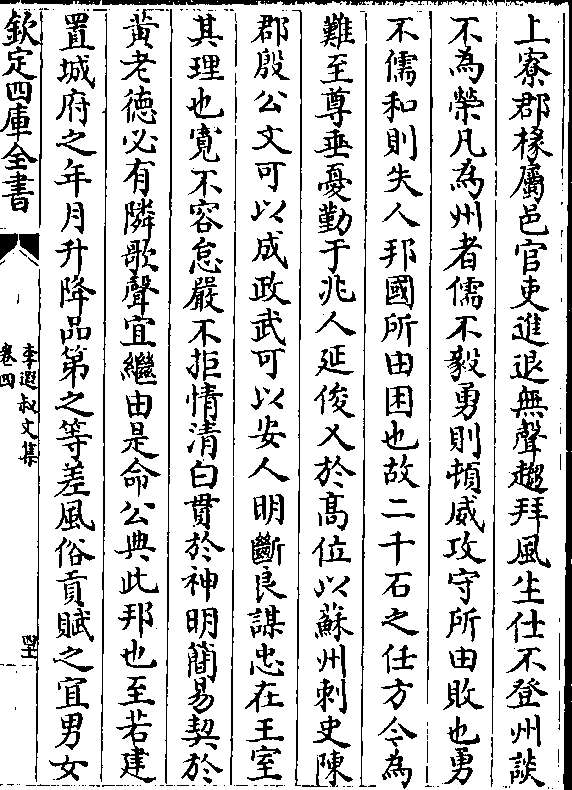 上寮郡掾屬邑官吏進退無聲趨拜風生仕不登州談
不為榮凡為州者儒不毅勇則頓威攻守所由敗也勇
不儒和則失人邦國所由困也故二千石之任方今為
難至尊垂憂勤于兆人延俊乂於髙位以蘇州刺史陳
郡殷公文可以成政武可以安人明斷良謀忠在王室
其理也寛不容怠嚴不拒情清白貫於神明簡易契於
黄老德必有隣歌聲宜繼由是命公典此邦也至若建
置城府之年月升降品第之等差風俗貢賦之宜男女
欽定四庫全書
李遐叔文集
卷四